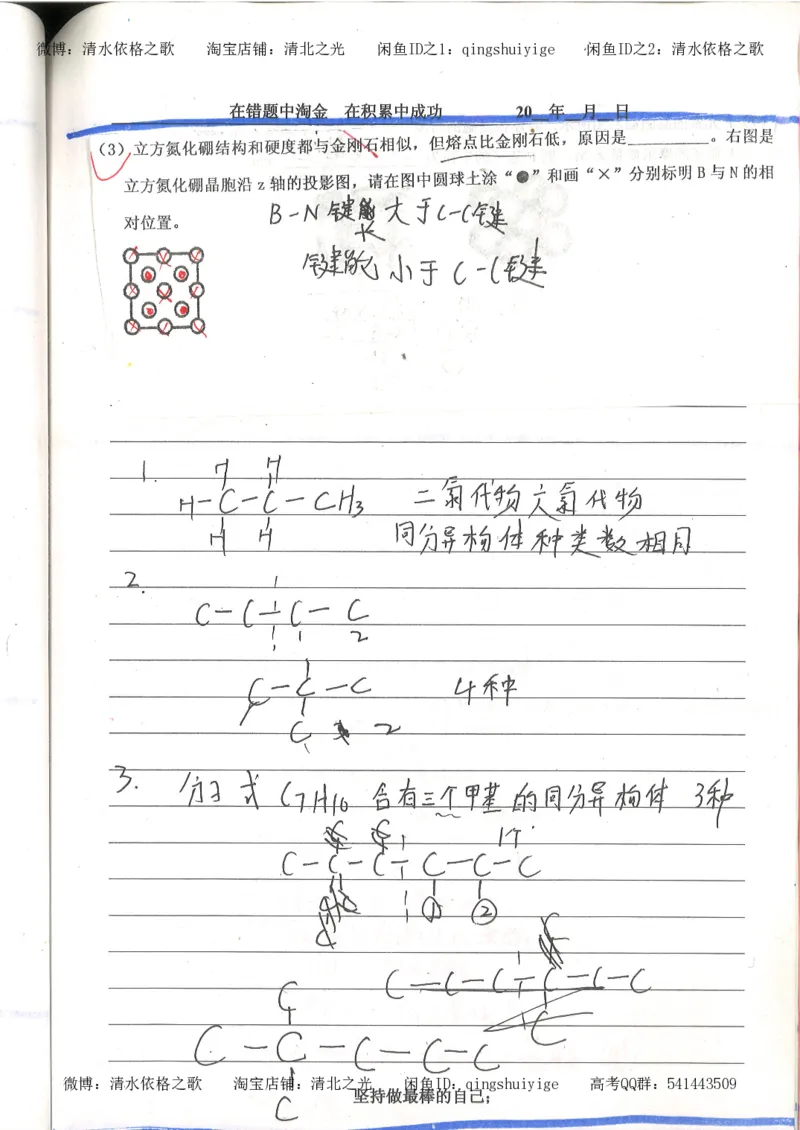 微博：清水依格之歌 淘宝店铺：清北之光 闲鱼ID之1：qingshuiyige 闲鱼ID之2：清水依格之歌
在错题中淘金 在积累中成功 20__年__月__日
（3）立方氮化硼结构和硬度都与金刚石相似，但熔点比金刚石低，原因是__________。右图是
立方氮化硼晶胞沿 z 轴的投影图，请在图中圆球上涂“●”和画“×”分别标明 B 与 N 的相
对位置。
B-N键长大于C-C键
键能小于C-C键
1.
H H
H-C-C-CH3 二氯代物六氯代物
H H 同分异构体种类数相同
2.
C-C-C-C
2
C-C-C 4种
C 2
3. 分子式C7H16含有三个甲基的同分异构体 3种
1个
C-C-C-C-C-C
① ②
C-C-C-C-C-C
C
C
C-C-C-C-C
C
微博：清水依格之歌 淘宝店铺：清北之光 闲鱼ID：qingshuiyige 高考QQ群：541443509
坚持做最棒的自己；